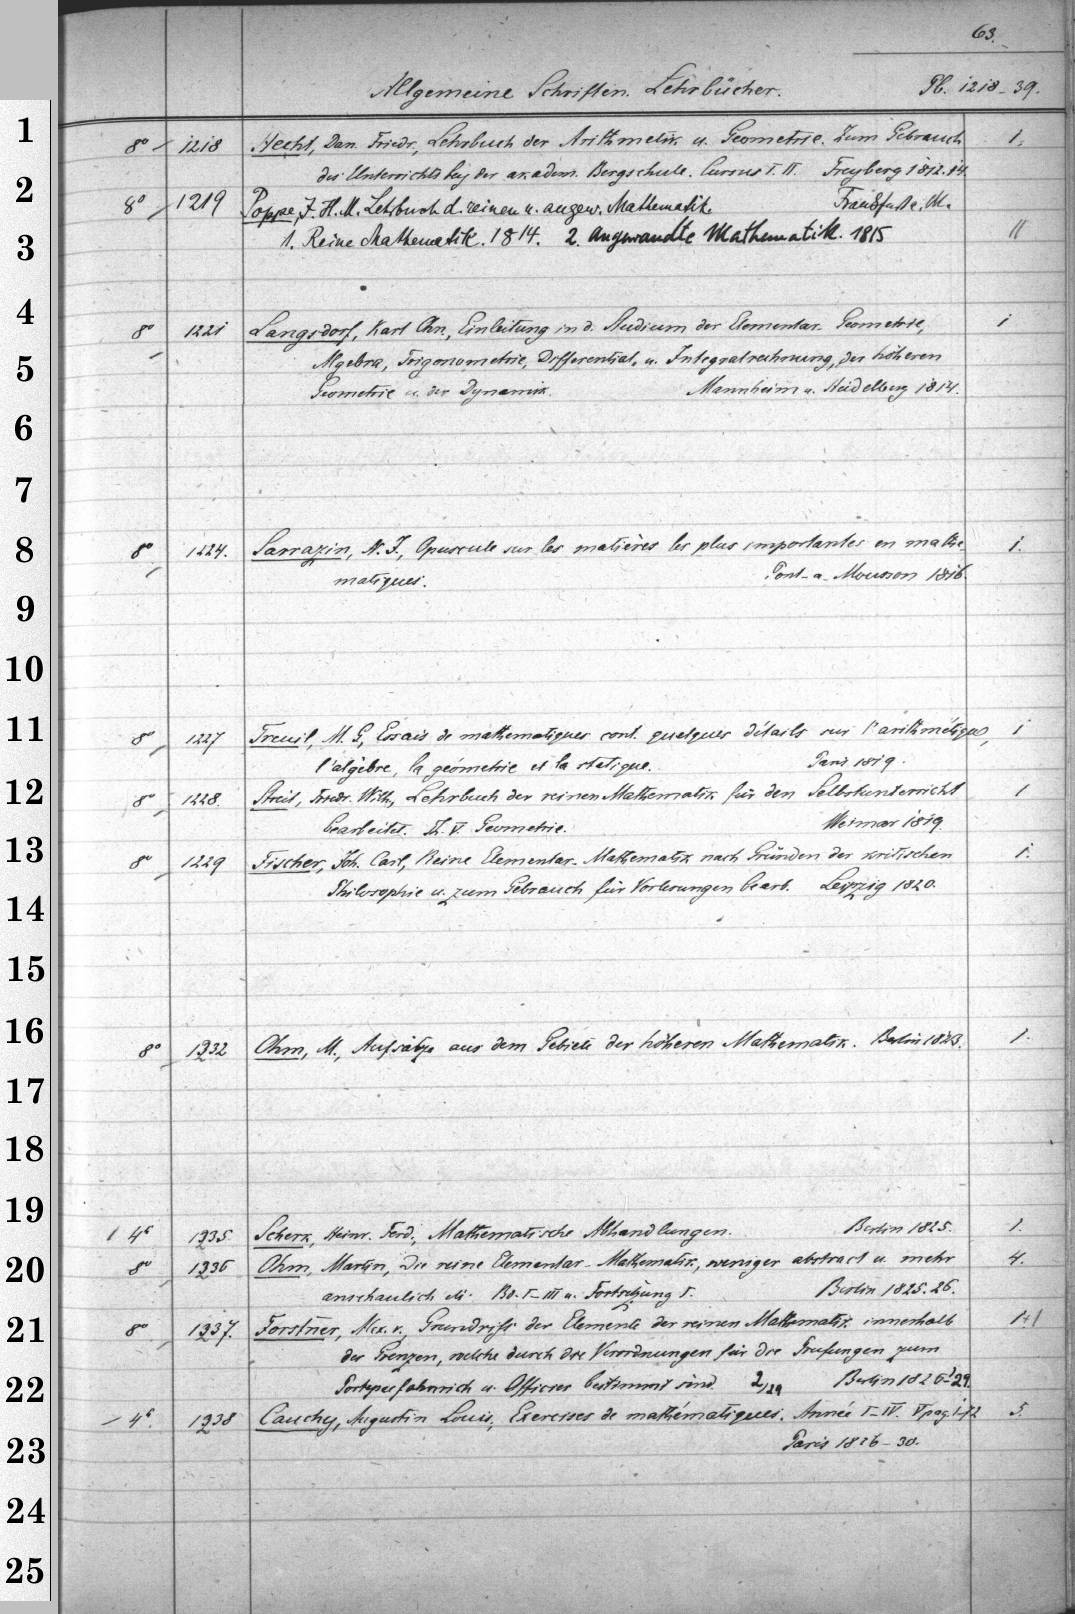 63.
Allgemeine Schriften. Lehrbücher. Pb. 1218-39.
1
8° 1218 Hecht, Dan. Friedr., Lehrbuch der Arithmetik u. Geometrie. Zum Gebrauch 1.
des Unterrichts bey der akadem. Bergschule. Cursus I. II. Freyberg 1812.14.
2
8° 1219 Poppe, J. H. M. Lehrbuch d. reinen u. angew. Mathematik. Frankfurt a. M.
3
1. Reine Mathematik. 1814. 2. angewandte Mathematik. 1815 II
4
8° 1221 Langsdorf, Karl Chn., Einleitung in d. Studium der Elementar-Geometrie, 1
5
Algebra, Trigonometrie, Differential- u. Integralrechnung, der höheren
Geometrie u. der Dynamik. Mannheim u. Heidelberg 1814.
6
7
8
8° 1224. Sarrazin, N. J., Opuscule sur les matières les plus importantes en mathé- 1.
matiques. Pont-a-Mousson 1816.
9
10
11
8° 1227 Treuil, M. G., Essais de mathematiques cont. quelques détails sur l'arithmétique, 1
l'algèbre, la géometrie et la statique. Paris 1819.
12
8° 1228. Streit, Friedr. Wilh., Lehrbuch der reinen Mathematik für den Selbstunterricht 1
bearbeitet. Th. V. Geometrie. Weimar 1819.
13
8° 1229 Fischer, Joh. Carl, Reine Elementar-Mathematik nach Gründen der kritischen 1.
14
Philosophie u. zum Gebrauch für Vorlesungen bearb. Leipzig 1820.
15
16
8° 1232 Ohm, M., Aufsätze aus dem Gebiete der höheren Mathematik. Berlin 1823. 1.
17
18
19
4° 1235. Scherk, Heinr. Ferd., Mathematische Abhandlungen. Berlin 1825. 1.
20
8° 1236 Ohm, Martin, Die reine Elementar-Mathematik, weniger abstract u. mehr 4.
anschaulich etc. Bd. I-III u. Fortsetzung I. Berlin 1825.26.
21
8° 1237. Forstner, Alex. v., Grundriss der Elemente der reinen Mathematik innerhalb 1+1
der Grenzen, welche durch die Verordnungen für die Prüfungen zum
22
Portepeefahnrich u. Officier bestimmt sind. 2/29 Berlin 1826-29.
4° 1238 Cauchy, Augustin Louis, Exercises de mathématiques. Année I-IV. V pag. 1-72 5.
23
Paris 1826-30.
24
25